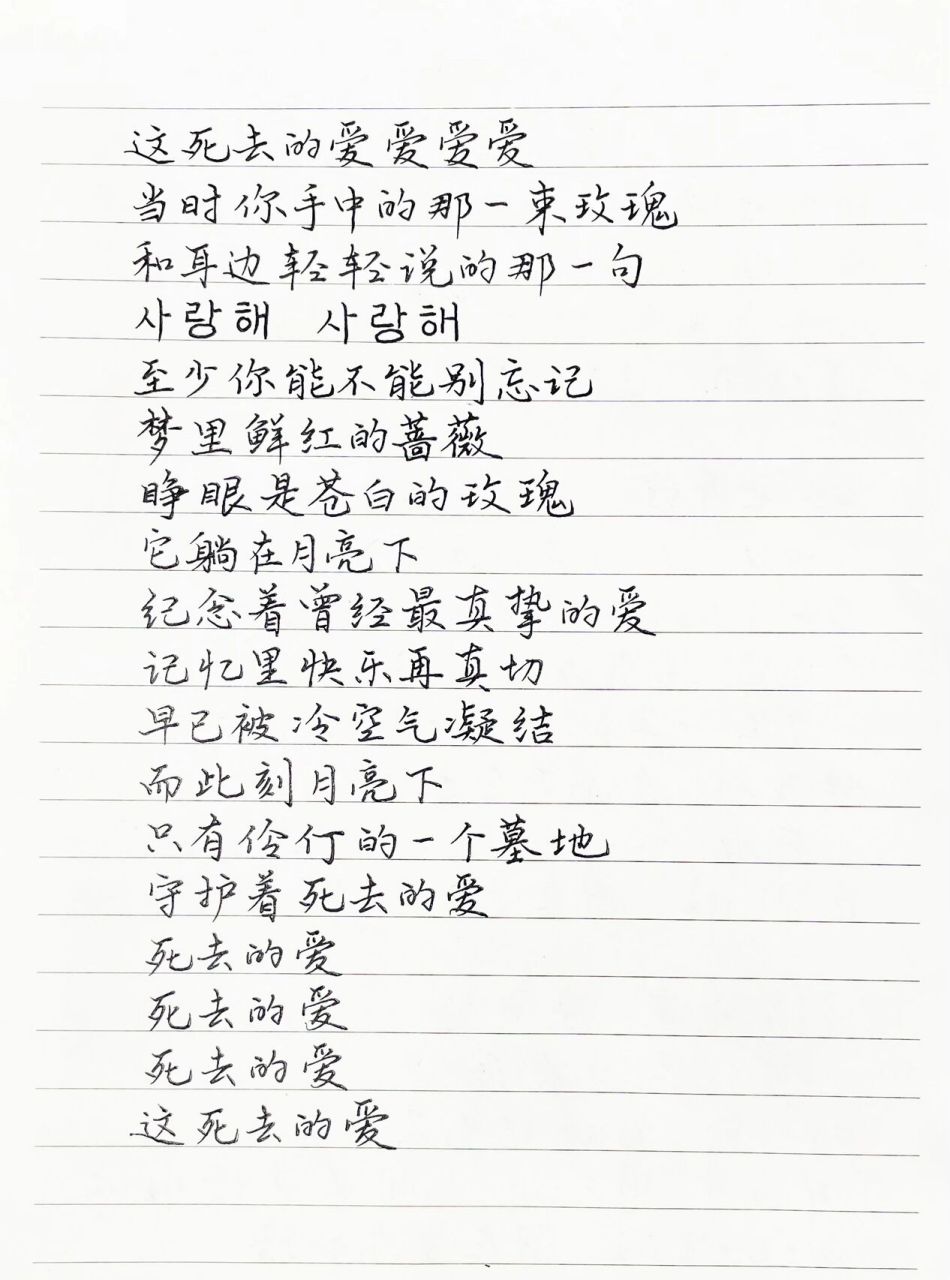 这死去的爱爱爱爱
当时你手中的那一束玫瑰
和耳边轻轻说的那一句
사랑해 사랑해
至少你能不能别忘记
梦里鲜红的蔷薇
睁眼是苍白的玫瑰
它躺在月亮下
纪念着曾经最真挚的爱
记忆里快乐再真切
早已被冷空气凝结
而此刻月亮下
只有伶仃的一个墓地
守护着死去的爱
死去的爱
死去的爱
死去的爱
这死去的爱